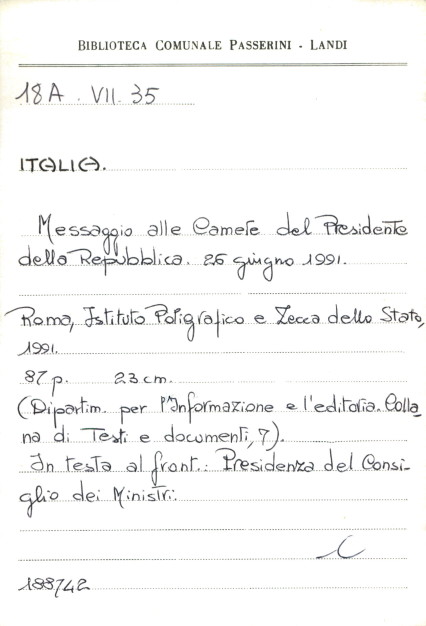 BIBLIOTECA COMUNALE PASSERINI - LANDI
18A . VII. 35
ITALIA.
Messaggio alle Camere del Presidente
della Repubblica. 26 giugno 1991.
Roma, Istituto Poligrafico e Zecca dello Stato,
1991.
87 p. 23 cm.
(Dipartim. per l'Informazione e l'editoria. Colla
na di Testi e documenti, 7).
In testa al front.: Presidenza del Consi-
glio dei Ministri.
C
188742